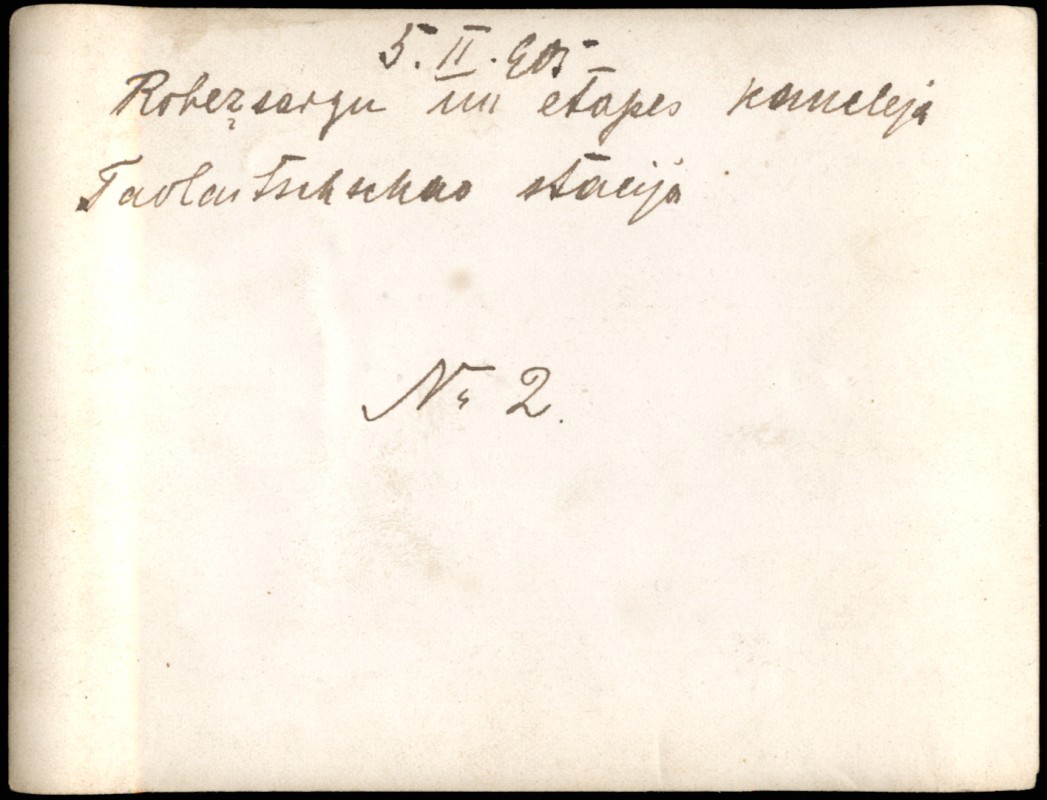 5. II. 905
Robežsargu un etapes kancleja
Taolaitschschao stacijā
Nr 2.